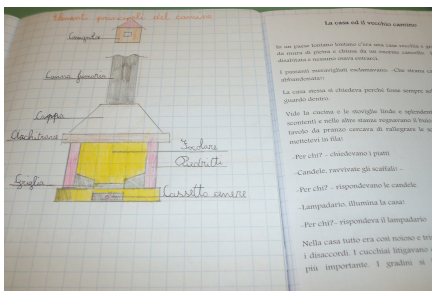 Elementi principali del camino
Comignolo
Canna fumaria
Cappa
Architrave
Focolare
Piedritti
Griglia
Cassetto cenere
La casa ed il vecchio camino
In un paese lontano lontano c'era una casa vecchia e
da mura di pietra e chiusa da un enorme cancello.
disabitata e nessuno osava entrarci.
I passanti meravigliati esclamavano: -Che strana ca
abbandonata!
La casa stessa si chiedeva perché fosse sempre
guardò dentro.
Vide la cucina e le stoviglie linde e splendenti
scontenti e nelle altre stanze regnavano il buio
tavolo da pranzo cercava di rallegrare le
mettetevi in fila!
-Per chi? - chiedevano i piatti
-Candele, ravvivate gli scaffali: -
-Per chi? - rispondevano le candele
-Lampadario, illumina la casa!
-Per chi?- rispondeva il lampadario
Nella casa tutto era così noioso e tri
i disaccordi. I cucchiai litigavano
più importante. I gradini si